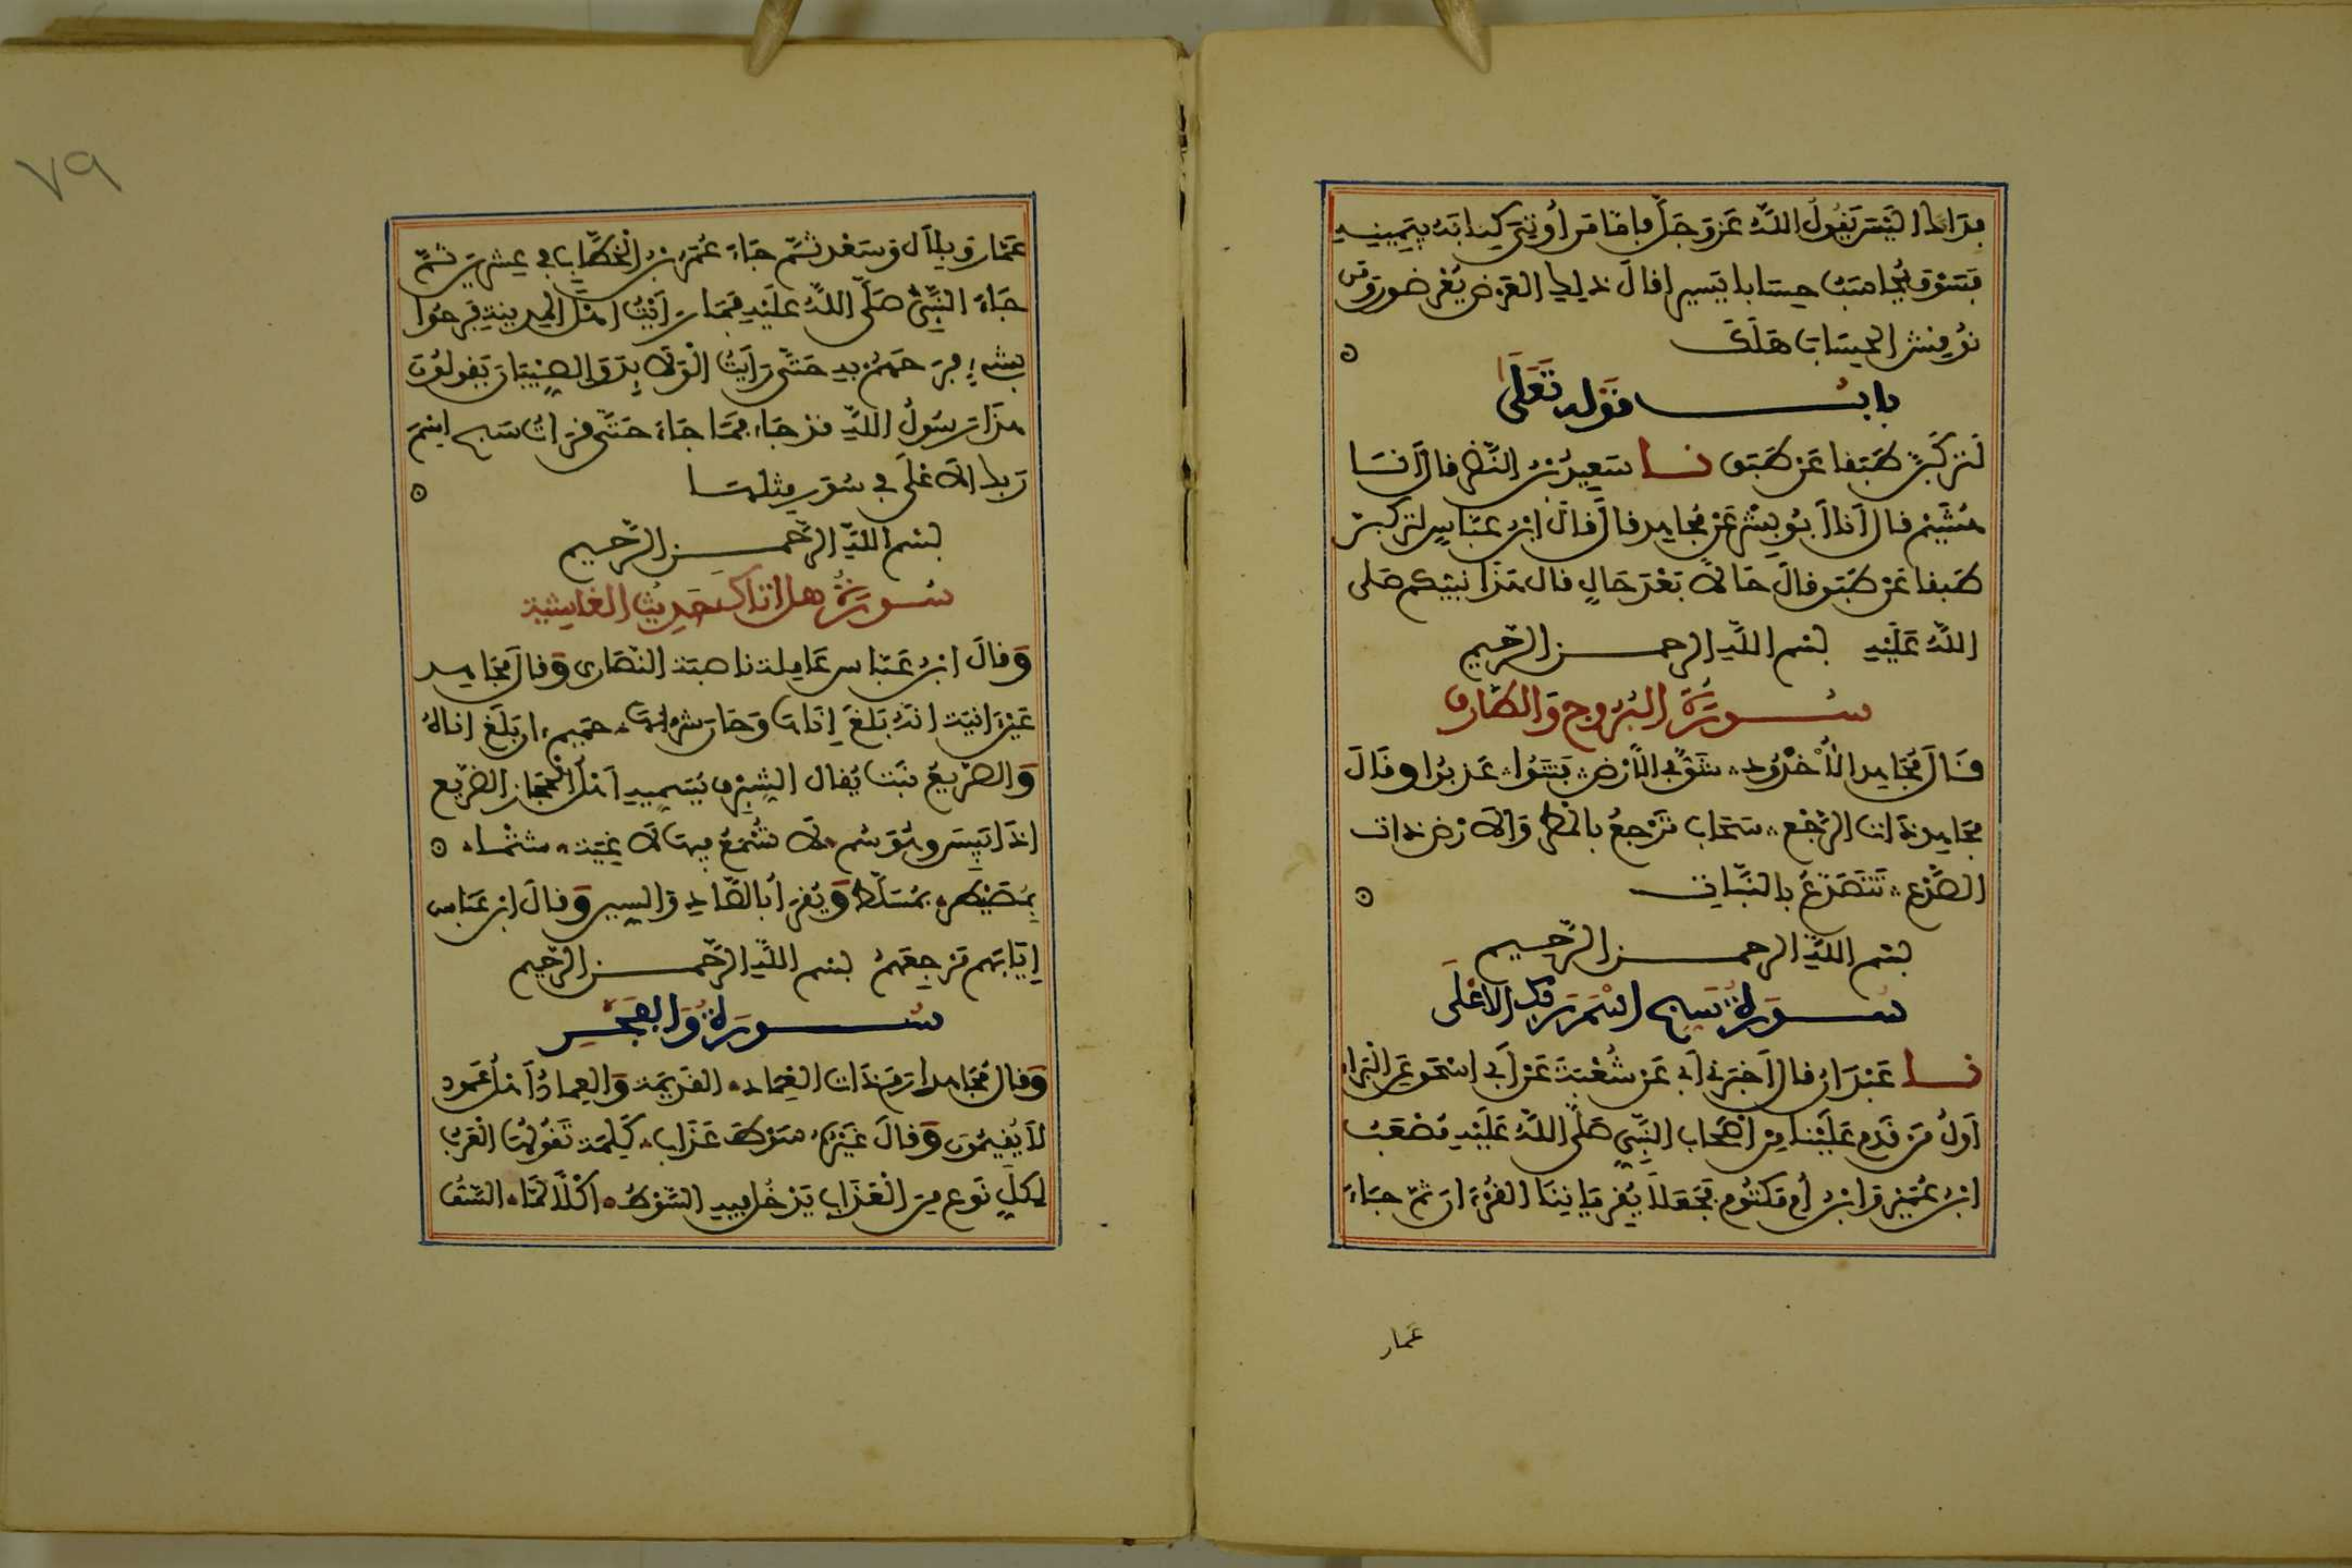 فداك اليس يقول الله عز وجل فاما من اوتي كتابه بيمينه
فسوف يحاسب حسابا يسيرا قال ذلك العرض يعرضون ومن
نوقش الحساب هلك
باب قوله تعلى
لتركبن طبقا عن طبق نا سعيد بن النضر قال انا
هشيم قال انا ابو بشر عن مجاهد قال قال ابن عباس لتركبن
طبقا عن طبق قال حالا بعد حال قال هذا نبيكم صلى
الله عليه بسم الله الرحمن الرحيم
سورة البروج والطارق
قال مجاهد الاخدود شق في الارض فتنوا عذبوا وقال
مجاهد ذات الرجع سحاب ترجع بالمطر والارض ذات
الصدع تتصدع بالنبات
بسم الله الرحمن الرحيم
سورة سبح اسم ربك الاعلى
نا عبدان قال اخبرني ابي عن شعبة عن ابي اسحق عن البراء
اول من قدم علينا من اصحاب النبي صلى الله عليه مصعب
ابن عمير وابن ام مكتوم فجعلا يقرياننا القرءان ثم جاء
عمار
٧٩
عمار وبلال وسعد ثم جاء عمر بن الخطاب في عشرين ثم
جاء النبي صلى الله عليه فما رايت اهل المدينة فرحوا
بشيء فرحهم به حتى رايت الولايد والصبيان يقولون
هذا رسول الله قد جاء فما جاء حتى قرات سبح اسم
ربك الاعلى في سور مثلها
بسم الله الرحمن الرحيم
سورة هل اتاك حديث الغاشية
وقال ابن عباس عاملة ناصبة النصارى وقال مجاهد
عين انية انه بلغ اناها وحان شربها حميم ان بلغ اناه
والضريع نبت يقال الشبرق يسميه اهل الحجاز الضريع
اذا يبس وهو سم لا تسمع فيها لاغية شتما
بمصيطر بمسلط ويقرا بالصاد والسين وقال ابن عباس
ايابهم مرجعهم بسم الله الرحمن الرحيم
سورة والفجر
وقال مجاهد ارم ذات العماد القديمة والعماد اهل عمود
لا يقيمون وقال غيره سوط عذاب كلمة تقولها العرب
لكل نوع من العذاب يدخل فيه السوط اكلا لما السف